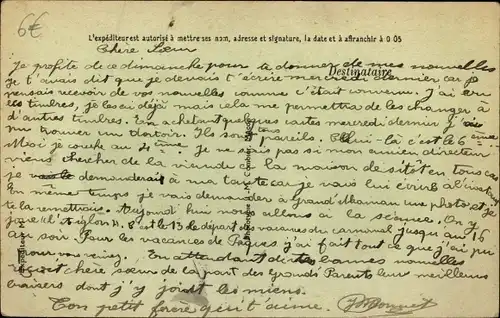 6€
L'expéditeur est autorisé à mettre ses nom, adresse et signature, la date et à affranchir à 0 05
Chère Sœur
Je profite de ce dimanche pour te donner de mes nouvelles
je t'avais dit que je devais t'écrire mercredi dernier car je
Destinataire
pensais recevoir de vos nouelles comme c'était convenu. J'ai
les timbres, je les ai déjà mais cela me permettra de les changer à
d'autres timbres. En achetant quelques cartes mercredi dernier j'ai
pu trouver un dortoir. Ils sont tous pareils. Celui-là c'est le 6ème
Moi je couche au 4ème je ne sais pas si mon ancien directeur
viens chercher de la viande à la maison de sitôt en tous cas
je demanderais à ma tante car je vais lui écrire à l'instant
En même temps je vais demander à Grand Maman une photo et je
te la remettrais. Aujourd'hui nous allons à la séance. On y
joue l'Aiglon. c'est le 13 le départ des vacances du carnaval jusqu'au 16
au soir. Pour les vacances de Pâques j'ai fait tout ce que j'ai pu
pour vous. En attendant de tes bonnes nouvelles
reçoit chère sœur de la part des Grands Parents leur meilleurs
baisers dont j'y joint les miens.
Ton petit frère qui t'aime.